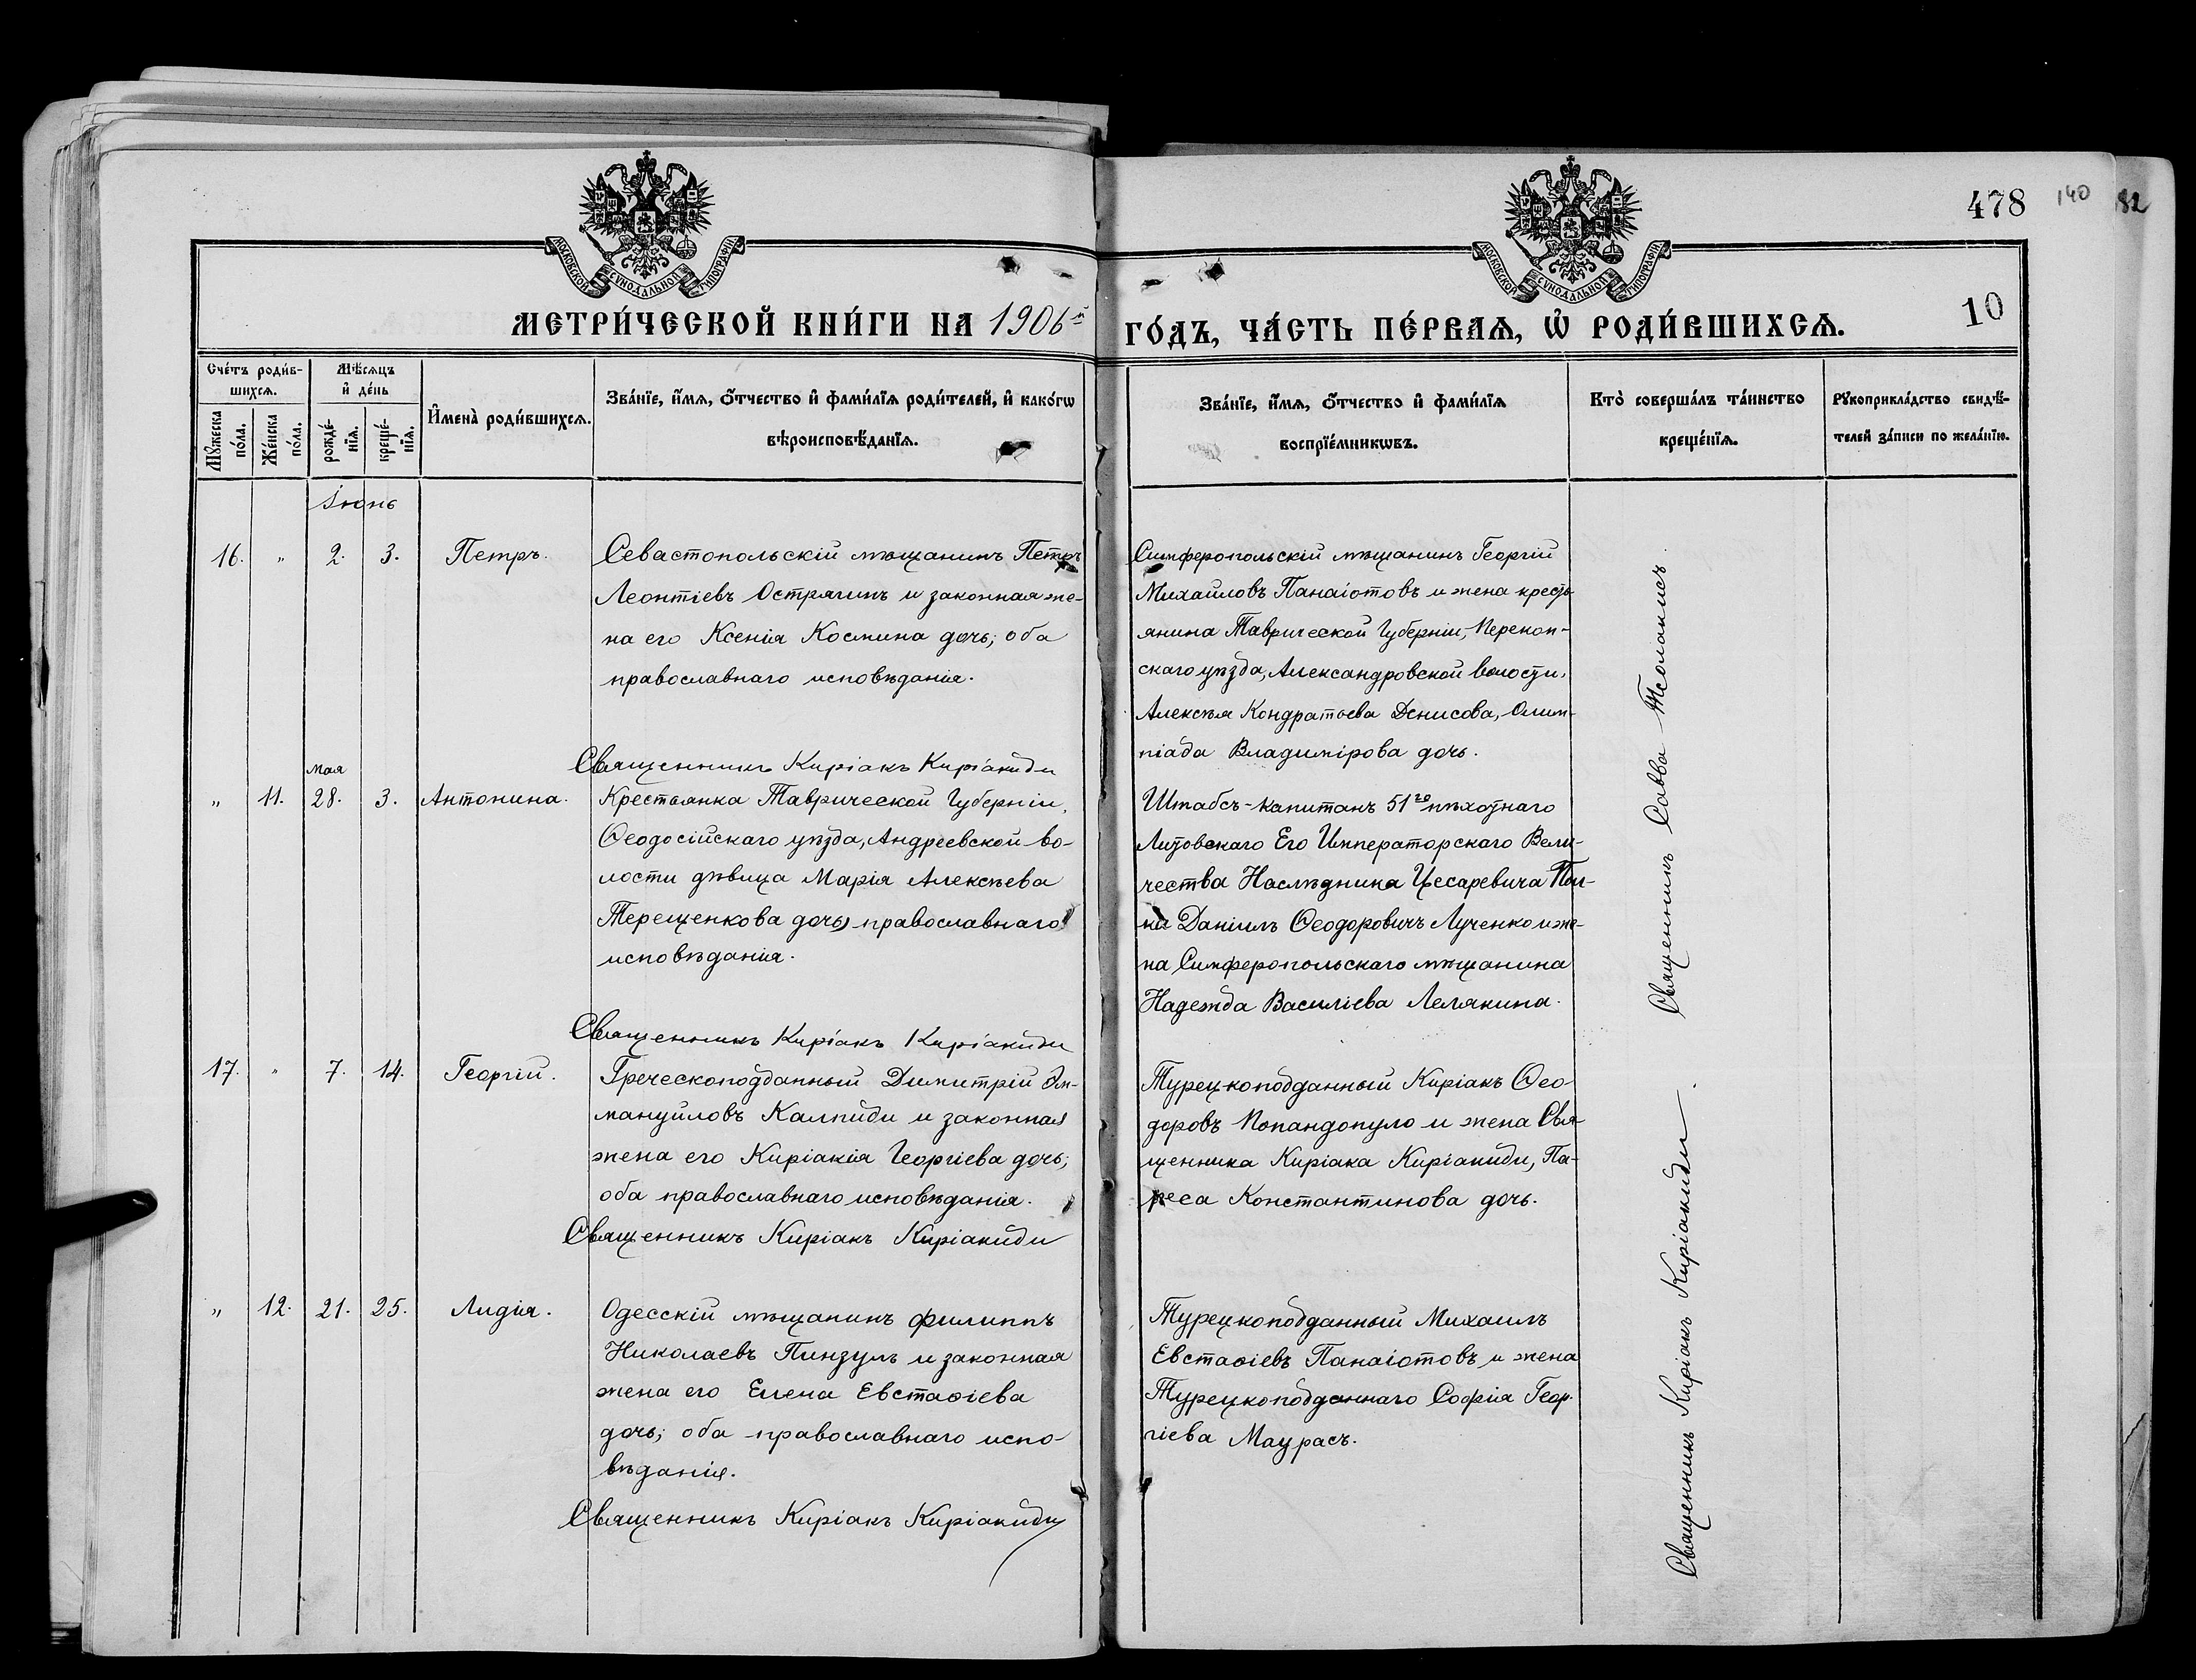 478 140 82
МОСКОВСКОЙ СѴНОДАЛЬНОЙ ТИПОГРАФІИ
МОСКОВСКОЙ СѴНОДАЛЬНОЙ ТИПОГРАФІИ
10
МЕТРИ́ЧЕСКОЙ КНИ́ГИ НА 1906й ГО́ДЪ, ЧА́СТЬ ПЕ́РВАѦ, Ѡ҆ РОДИ́ВШИХСѦ.
Сче́тъ роди́в-
шихсѧ.
Мꙋ́жеска по́ла.
Же́нска по́ла.
Мѣ́сѧцъ
и҆ де́нь
рожде́-
нїѧ.
креще́-
нїѧ.
И҆мена̀ роди́вшихсѧ.
Зва́нїе, и҆́мѧ, ѻ҆́тчество и҆ фами́лїѧ роди́телей, и҆ како́гѡ
вѣроисповѣ́данїѧ.
Зва́нїе, и҆́мѧ, ѻ҆́тчество и҆ фами́лїѧ
воспрїе́мникѡвъ.
Кто̀ соверша́лъ та́инство
креще́нїѧ.
Рꙋкоприкла́дство свидѣ́-
телей за́писи по жела́нїю.
Іюнь
16. " 2. 3. Петръ.
Севастопольскій мѣщанинъ Петръ
Леонтіевъ Острягинъ и законная же-
на его Ксенія Космина дочь; оба
православнаго исповѣданія.
Священникъ Киріакъ Киріакиди
Симферопольскій мѣщанинъ Георгій
Михайловъ Панаіотовъ и жена кресть-
янина Таврической Губерніи, Перекоп-
скаго уѣзда, Александровской волости,
Алексѣя Кондратьева Денисова, Олим-
піада Владимірова дочь.
мая
" 11. 28. 3. Антонина.
Крестьянка Таврической Губерніи,
Ѳеодосійскаго уѣзда, Андреевской во-
лости дѣвица Марія Алексѣева
Терещенкова дочь, православнаго
исповѣданія.
Священникъ Киріакъ Киріакиди
Штабсъ-капитанъ 51го пѣхотнаго
Литовскаго Его Императорскаго Вели-
чества Наслѣдника Цесаревича Пол-
ка Даніилъ Ѳеодоровичъ Лученко и же-
на Симферопольскаго мѣщанина
Надежда Василіева Лелякина.
17. " 7. 14. Георгій.
Греческоподданный Димитрій Эм-
мануиловъ Калпиди и законная
жена его Киріакія Георгіева дочь;
оба православнаго исповѣданія.
Священникъ Киріакъ Киріакиди
Турецкоподданный Киріакъ Ѳео-
доровъ Попандопуло и жена Свя-
щенника Киріака Киріакиди, Па-
реса Константинова дочь.
" 12. 21. 25. Лидія.
Одесскій мѣщанинъ Филиппъ
Николаевъ Пинзулъ и законная
жена его Елена Евстаѳіева
дочь; оба православнаго испо-
вѣданія.
Священникъ Киріакъ Киріакиди
Турецкоподданный Михаилъ
Евстаѳіевъ Панаіотовъ и жена
Турецкоподданнаго Софія Геор-
гіева Маурасъ.
Священникъ Савва Тсолакисъ.
Священникъ Киріакъ Киріакиди.